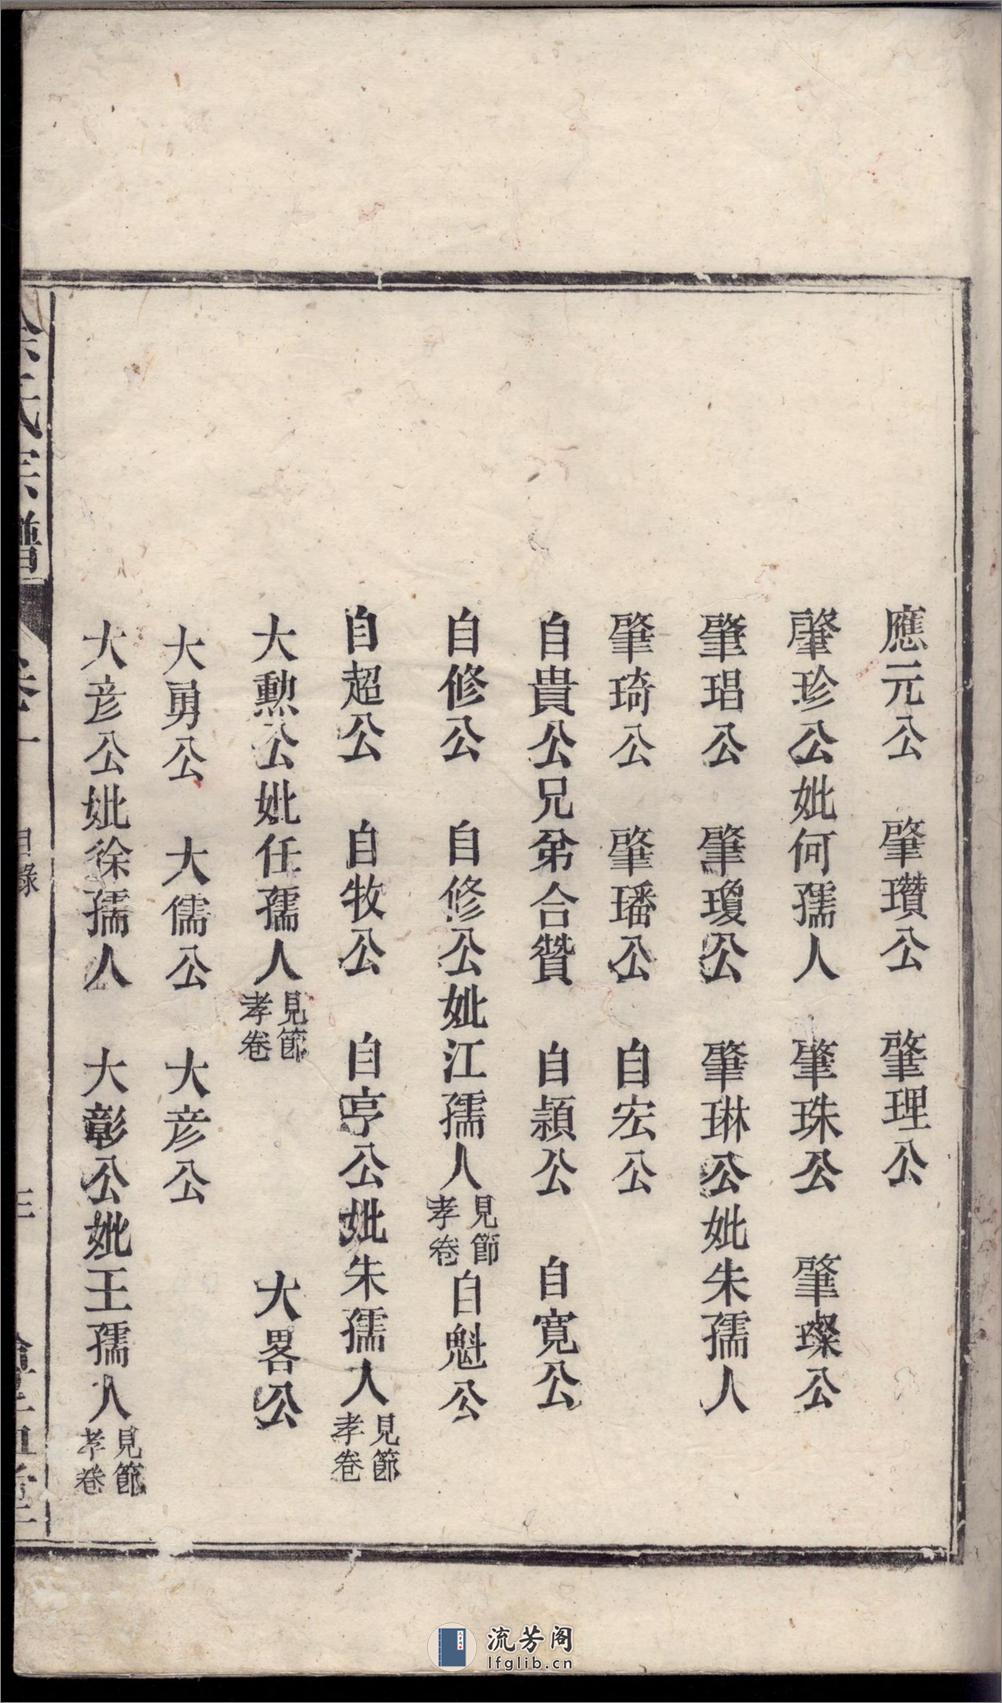 應元公　肇瓚公　肇理公
肇珍公妣何孺人　肇珠公　肇璨公
肇琩公　肇瓊公　肇琳公妣朱孺人
肇琦公　肇璠公　自宏公
自貴公兄弟合贊　自穎公　自寬公
自修公　自修公妣江孺人見節孝卷　自魁公
自超公　自牧公　自亨公妣朱孺人見節孝卷
大勲公妣任孺人見節孝卷　大畧公
大勇公　大儒公　大彥公
大彥公妣徐孺人　大彰公妣王孺人見節孝卷
氏宗譜　卷一　目錄　三
流芳阁
lfglib.cn